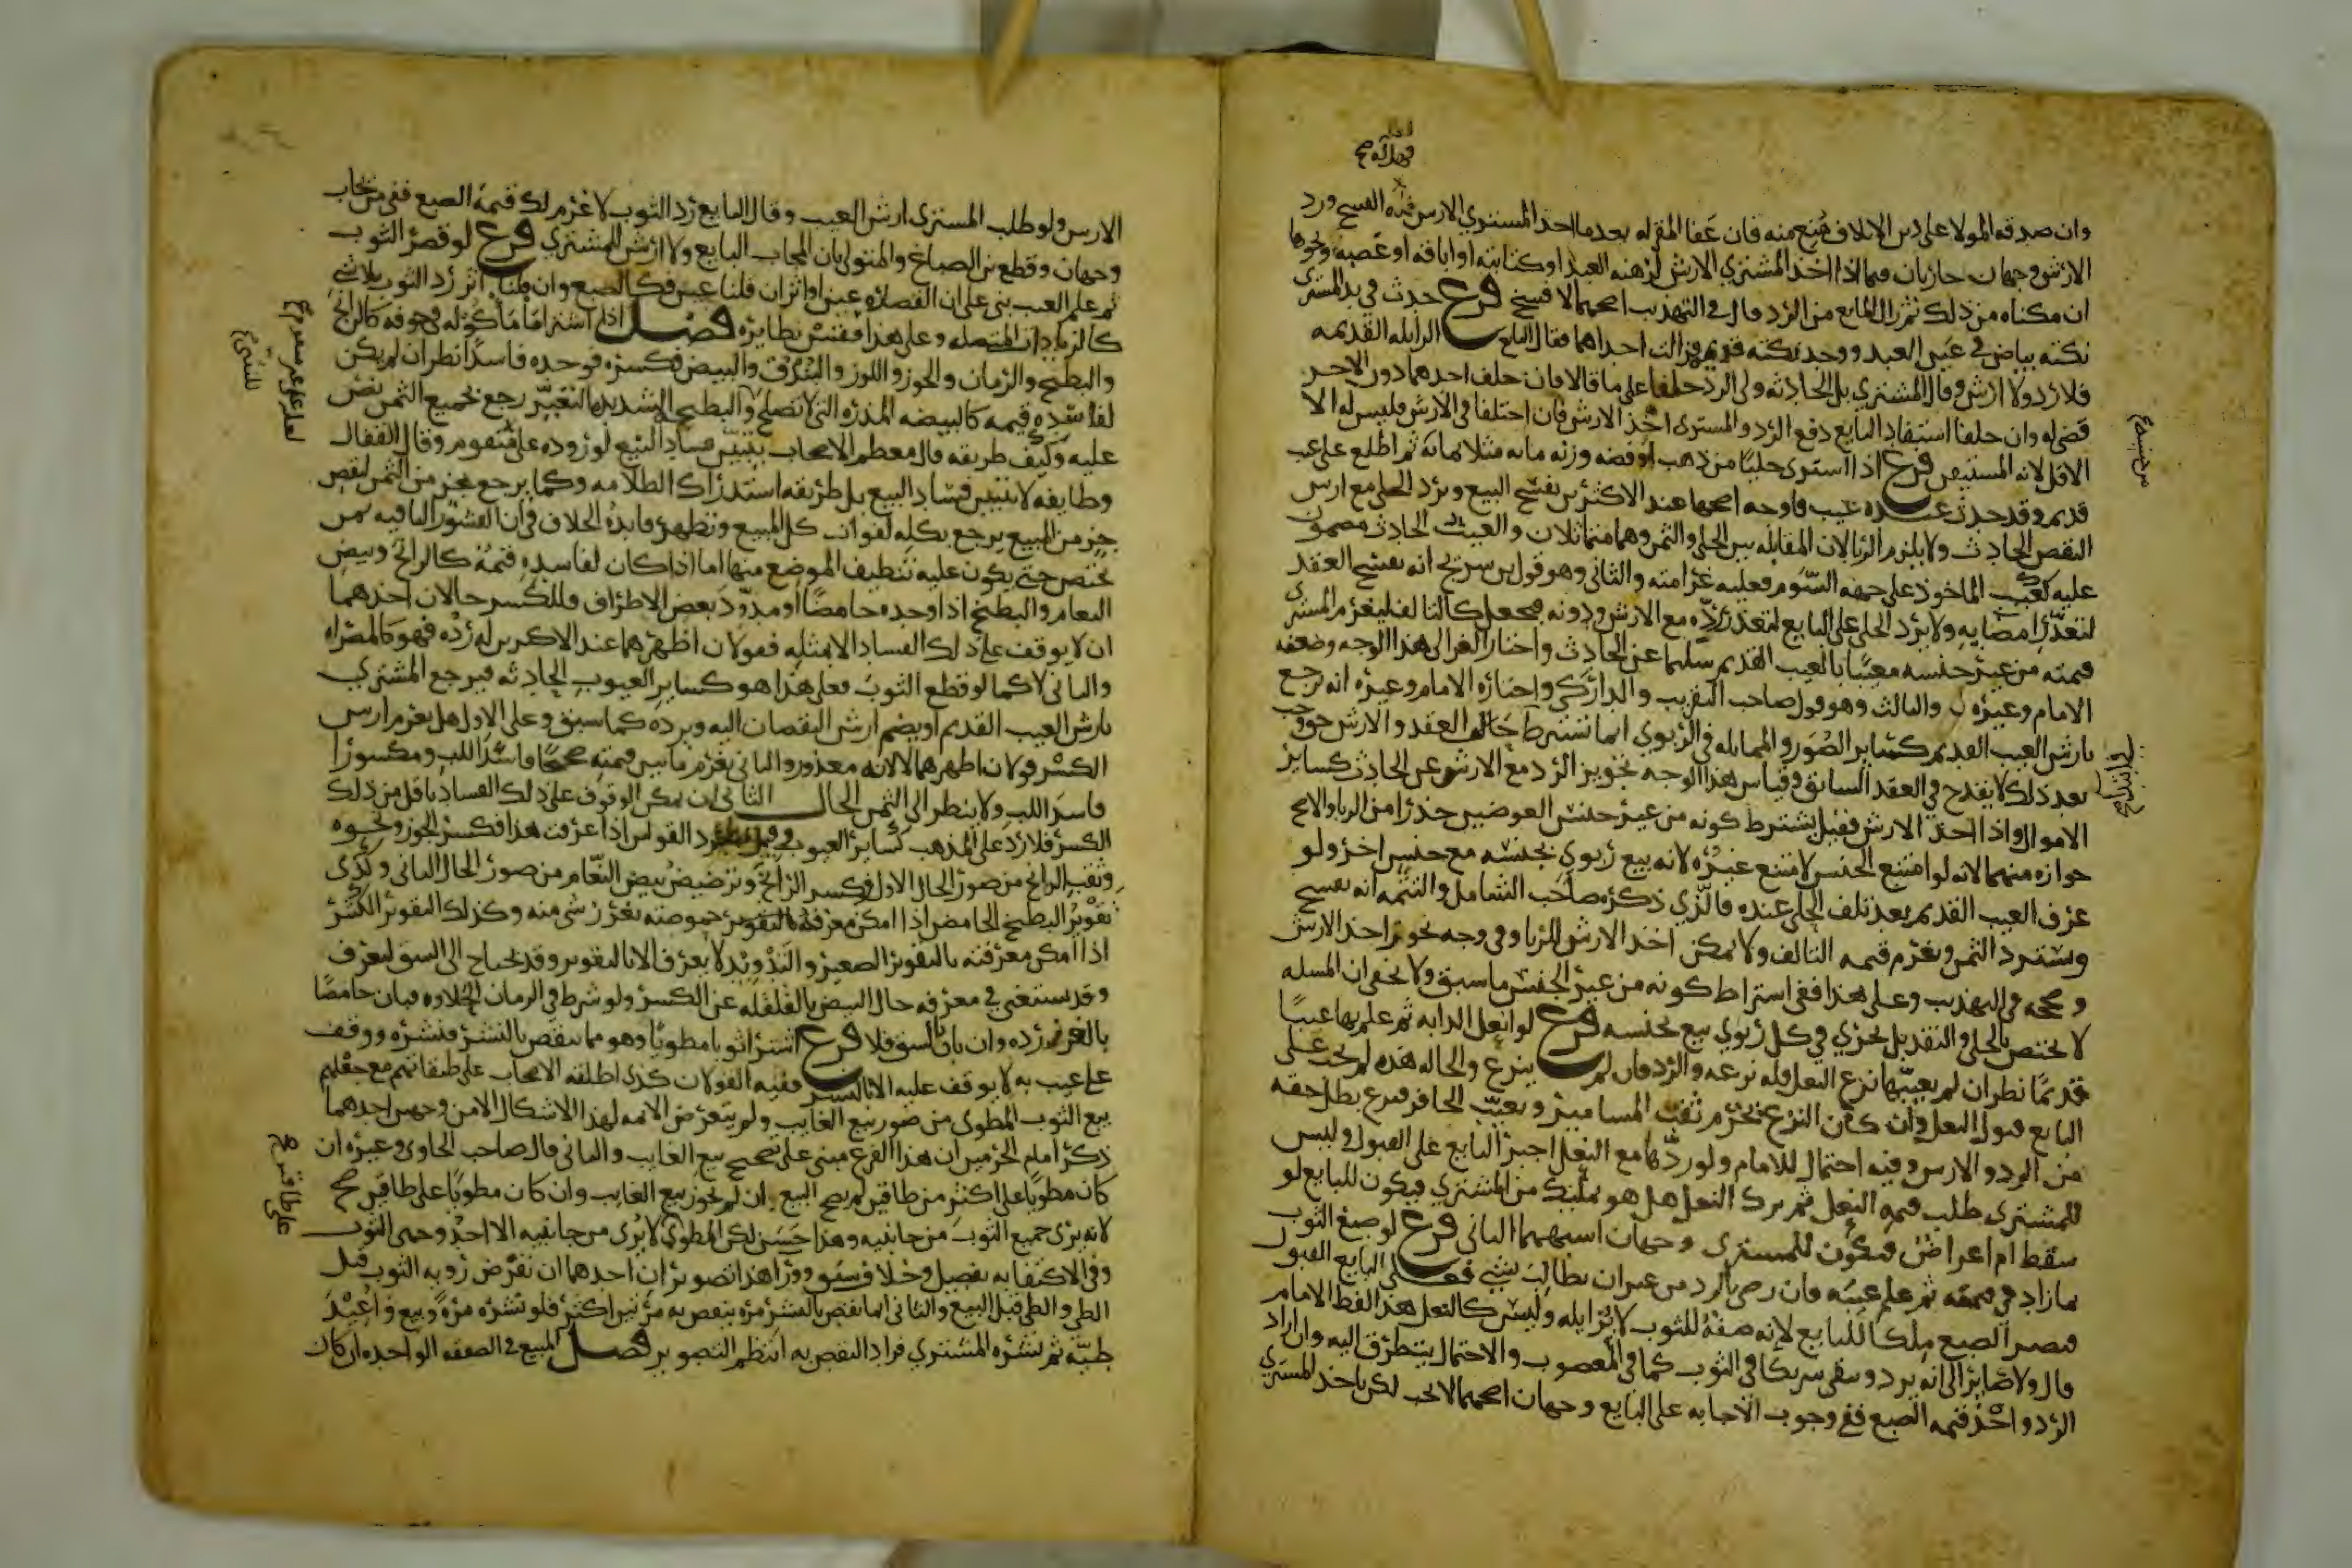 وان صدقه المولا على دين الاتلاف مُنع منه فان عَفا المقر له بعدما اخذ المشتري الارش فله الفسخ ورد
الارش وجهان جاريان فيما اذا اخذ المشتري الارش لرهنه العبد او كتابته او اباقه او غصبه ونحوها
ان مكناه من ذلك ثم زال المانع من الرد قال في التهذيب اصحهما لا فسخ فرع حدث في يد المشتري
نكتة بياض في عَين العبد ووجد نكتة قديمة فزالت احداهما فقال البايع الزايله القديمه
فلا رد ولا ارش وقال المشتري بل الحادثه ولي الرد حلفا على ما قالا فان حلف احدهما دون الاخر
قضى له وان حلفا استفاد البايع دفع الرد والمشتري اخذ الارش فان اختلفا في الارش فليس له الا
الاقل لانه المستيقن فرع اذا اشترى حليًا من ذهب او فضه وزنه مايه مثلا بمايه ثم اطلع على عيب
قديم وقد حدث عنده عيب فاوجه اصحها عند الاكثرين يفسخ البيع ويرد الحلي مع ارش
النقص الحادث ولا يلزم الربا لان المقابله بين الحلي والثمن وهما متماثلان والعيب الحادث مضمون
عليه كعيب الماخوذ على جهه السّوم فعليه غرامته والثاني وهو قول بن سريج انه يفسخ العقد
لتعذّر امضايه ولا يرد الحلي على البايع لتعذر ردّه مع الارش ودونه فيجعل كالتالف فليغرم المشتري
قيمته من غير جنسه معيبًا بالعيب القديم سليما عن الحادث واختار الغزالي هذا الوجه وضعفه
الامام وغيره والثالث وهو قول صاحب التقريب والداركي واختاره الامام وغيره انه يرجع
بارش العيب القديم كساير الصُوَر والمماثله في الربوي انما تشترط حَالة العقد والارش حق وجب
بعد ذلك لا يقدح في العقد السابق وقياس هذا الوجه تجويز الرد مع الارش عن الحادث كساير
الاموال واذا اخذ الارش فقيل يشترط كونه من غير جنس العوضين حذرًا من الربا والاصح
جوازه منهما لانه لو امتنع الجنس لامتنع غيره لانه بيع ربوي بجنسه مع جنس اخر ولو
عرف العيب القديم بعد تلف الحلي عنده فالّذي ذكره صاحب الشامل والتتمه انه يفسخ
ويسترد الثمن ويغرم قيمه التالف ولا يمكن اخذ الارش للربا وفي وجه يجوز اخذ الارش
وصححه في التهذيب وعلى هذا ففي اشتراط كونه من غير الجنس ما سبق ولا يخفى ان المسله
لا تختص بالحلي والنقد بل تجري في كل ربوي بيع بجنسه فرع لو انعل الدابه ثم علم بها عيبًا
قديمًا نظر ان لم يعيبها نزع النعل فله نزعه والرد فان لم ينزع والحاله هذه لم يجب على
البايع قبول النعل وان كان النزع يخرم ثقب المسامير ويعيّب الحافر فنزع بطل حقه
من الرد والارش وفيه احتمال للامام ولو ردّها مع النعل اجبر البايع على القبول وليس
للمشتري طلب قيمه النعل ثم ترك النعل هل هو تمليك من المشتري فيكون للبايع لو
سقط ام اعراضٌ فيكون للمشتري وجهان اشبههما الثاني فرع لو صبغ الثوب
بما زاد في قيمته ثم علم عيبه فان رضي بالرد من غير ان يطالب بشي فعلى البايع القبول
فيصير الصبغ ملكًا للبايع لانه صفةٌ للثوب لا تُزايله وليس كالنعل هذا لفظ الامام
قال ولا صَاير الى انه يرد ويبقى شريكًا في الثوب كما في المغصوب والاحتمال يتطرق اليه وان اراد
الرد واخذ قيمه الصبغ ففي وجوب الاجابه على البايع وجهان اصحهما لا تجب لكن ياخذ المشتري
الارش ولو طلب المشتري ارش العيب وقال البايع رُد الثوب لاغرم لك قيمة الصبغ ففي من يجاب
وجهان وقطع بن الصباغ والمتولي بان المجاب البايع ولا ارش للمشتري فرع لو قصر الثوب
ثم علم العيب بني على ان القصاره عين او اثر ان قلنا عين فكالصبغ وان قلنا اثر رد الثوب بلا شي
كالزيادات المتصله وعلى هذا فقس نظايره فصل اذا اشترا ما مأكوله في جوفه كالرانج
والبطيخ والرمان والجوز واللوز والبندق والبيض فكسره فوجده فاسدًا نظر ان لم يكن
لفاسده قيمه كالبيضه المذره التي لا تصلح والبطيخ الشديد التغيّر رجع بجميع الثمن نص
عليه وكيف طريقه قال معظم الاصحاب يتبيّن فساد البيع لوروده على متقوم وقال القفال
وطايفه لا يتبين فساد البيع بل طريقه استدراك الظلامه وكما يرجع بجزء من الثمن لنقص
جزء من المبيع يرجع بكله لفوات كل المبيع وتظهر فايدة الخلاف في ان القشور الباقيه بمن
تختص حتى يكون عليه تنظيف الموضع منها اما اذا كان لفاسده قيمةٌ كالرانج وبيض
النعام والبطيخ اذا وجده حامضًا او مدوّد بعض الاطراف فللكسر حالان احدهما
ان لا يوقف على ذلك الفساد الا بمثله فقولان اظهرهما عند الاكثرين له رده فهو كالمصراه
والثاني لا كما لو قطع الثوب فعلى هذا هو كساير العيوب الحادثه فيرجع المشتري
بارش العيب القديم او يضم ارش النقصان اليه ويرده كما سبق وعلى الاول هل يغرم ارش
الكسر قولان اظهرهما لا لانه معذور والثاني يغرم ما بين قيمته صحيحًا فاسدَ اللب ومكسورًا
فاسدَ اللب ولا ينظر الى الثمن الحال الثاني ان يمكن الوقوف على ذلك الفساد باقل من ذلك
الكسر فلا رد على المذهب كساير العيوب وقيل يطرد القولين اذا عرفت هذا فكسر الجوز ونحوه
وثقب الرانج من صور الحال الاول وكسر الرانج وترضيض بيض النّعام من صور الحال الثاني وكذى
تقويرُ البطيخ الحامض اذا امكن معرفة حموضته بغرز شي منه وكذلك التقوير الكبير
اذا امكن معرفته بالتقوير الصغير والتَدْويد لا يعرف الا بالتقوير وقد يحتاج الى الشق ليعرف
وقد يستغنى في معرفه حال البيض بالقلقله عن الكسر ولو شرط في الرمان الحلاوه فبان حامضًا
بالغرز رده وان بان بالشق فلا فرع اشترا ثوبا مطويًا وهو مما ينقص بالنشر فنشره ووقف
على عيب به لا يوقف عليه الا بالنشر ففيه القولان كذى اطلقه الاصحاب على طبقاتهم مع جعلهم
بيع الثوب المطوي من صور بيع الغايب ولم يتعرض الائمه لهذا الاشكال الا من وجهين احدهما
ذكر امام الحرمين ان هذا الفرع مبني على تصحيح بيع الغايب والثاني قال صاحب الحاوي وغيره ان
كان مطويًا على اكثر من طاقين لم يصح البيع ان لم نجوز بيع الغايب وان كان مطويًا على طاقين صح
لانه يرى جميع الثوب من جانبيه وهذا حَسَن لكن المطوي لا يُرى من جانبيه الا احد وجهي الثوب
وفي الاكتفا به تفصيل وخلاف سبق وورا هذا تصويران احدهما ان تفرض رويه الثوب قبل
الطي والطي قبل البيع والثاني انما ينقص بالنشر مره ينقص به مرّتين اكثر فلو نشره مرةً وبيع واعِيْدَ
طيّه ثم نشره المشتري فزاد النقص به انتظم التصوير فصل المبيع في الصفقه الواحده ان كان
على طاقين صح